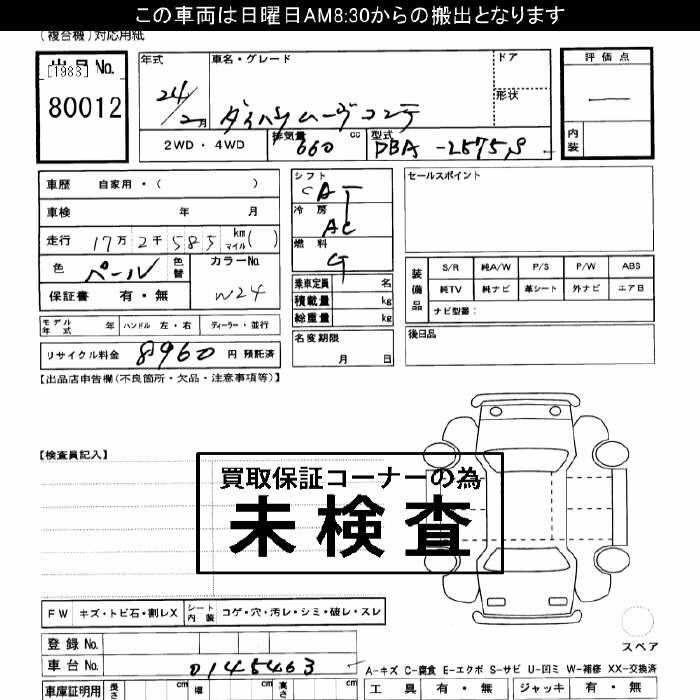 この車両は日曜日AM8:30からの搬出となります
(複合機)対応用紙
[1983] No.
80012
年式
24/2月
車名・グレード
ダイハツムーヴコンテ
ドア
形状
評価点
内装
2WD・4WD
排気量 660 cc
型式 DBA-L575S
車歴 自家用・( )
車検 年 月
走行 17万2千585 km マイル( )
色 パール 色替
カラーNo. W24
保証書 有・無
シフト
CAT
冷房
AC
燃料
G
乗車定員 名
積載量 kg
総重量 kg
セールスポイント
装備品
S/R 純A/W P/S P/W ABS
純TV 純ナビ 革シート 外ナビ エアB
ナビ型番:
モデル年式 年 ハンドル 左・右 ディーラー・並行
リサイクル料金 8960 円 預託済
名変期限
月 日
後日品
【出品店申告欄(不良箇所・欠品・注意事項等)】
【検査員記入】
買取保証コーナーの為
未検査
FW キズ・トビ石・割レX シート内装 コゲ・穴・汚レ・シミ・破レ・スレ
スペア
登録No.
車台No. 0145463
A-キズ C-腐食 E-エクボ S-サビ U-凹ミ W-補修 XX-交換済
車庫証明用 長さ cm 幅 cm 高さ cm
工具 有・無 ジャッキ 有・無